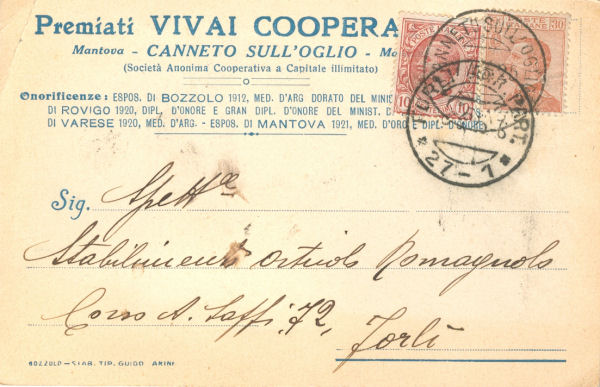 Premiati VIVAI COOPERA
Mantova - CANNETO SULL'OGLIO - Mo
(Società Anonima Cooperativa a Capitale illimitato)
Onorificenze: ESPOS. DI BOZZOLO 1912, MED. D'ARG DORATO DEL MINIS
DI ROVIGO 1920, DIPL. D'ONORE E GRAN DIPL. D'ONORE DEL MINIST. D
DI VARESE 1920, MED. D'ARG. - ESPOS. DI MANTOVA 1921, MED. D'ORO DIPL. D'ONORE
POSTE ITALIANE
10
30
SULL'OGLIO
PART.
*27-1*
Sig. Spett.le
Stabilimento Orticolo Romagnolo
Corso A. Saffi 72,
Forlì
BOZZOLO - STAB. TIP. GUIDO ARINI